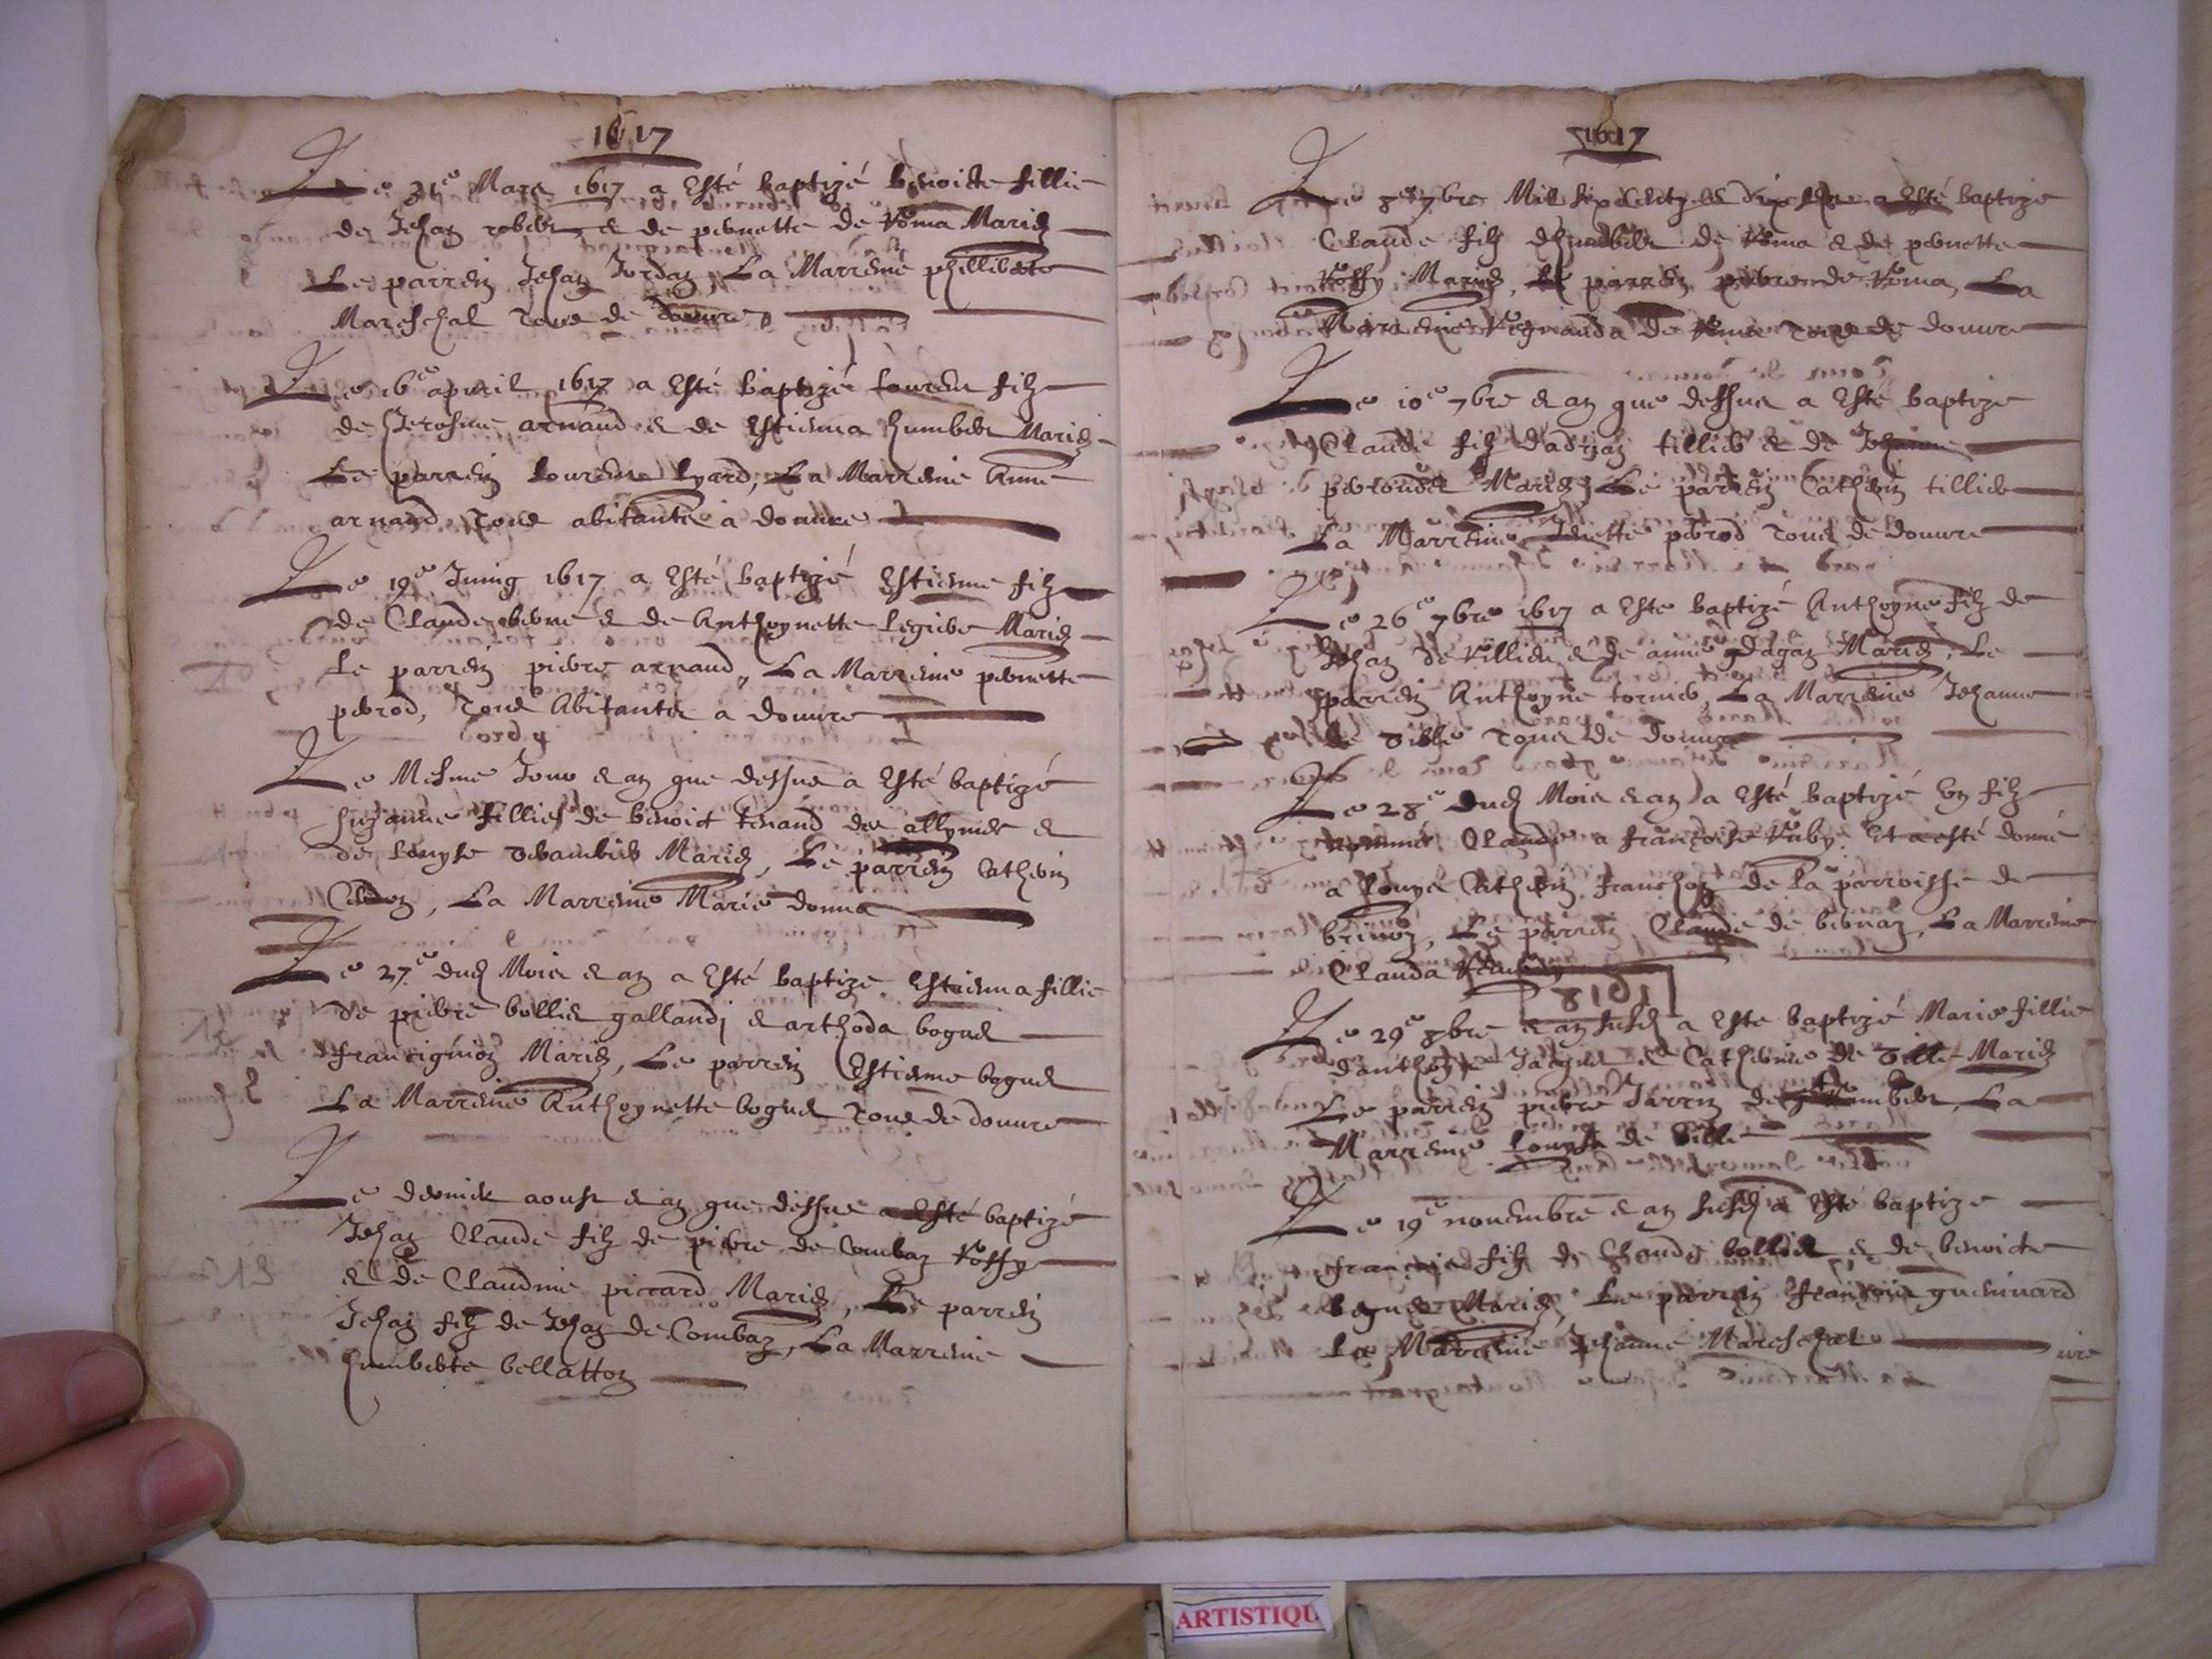 1617
Le 31e Mars 1617 a Esté baptizé benoicte fillie
de Jehan robert & de pernette de Roma Mariez
Le parrein Jehan Jordan, La Marreine philliberte
Mareschal tous de douure
Le 16e apuril 1617 a Esté baptizé Lourens filz
de Jerosme arnaud & de Estienna humbert Mariez
Le parrein Lourens Lyard, La Marreine Anne
arnaud tous abitants a douure
Le 19e Juing 1617 a Esté baptizé Estienne filz
de Claude & de Anthoynette Mariez
Le parrein pierre arnaud, La Marreine pernette
perrod, tous Abitants a douure
Le Mesme Jour & an que dessus a Esté baptizé
suzanne fillie de benoict tenand des allymes &
de Louyse Mariez, Le parrein Catherin
La Marreine Marie donna
Le 27e dud Mois & an a Esté baptize Estienna fillie
de pierre bollies gallandj & arthoda bogues
francignion Mariez, Le parrein Estienne bogues
La Marreine Anthoynette bogues tous de douure
Le dernier aoust & an que dessus a Esté baptizé
Jehan Claude filz de pierre de Comban Rossy
& de Claudine piccard Mariez, Le parrein
Jehan filz de Jehan de Comban, La Marreine
humberte bellatton
1617
Le 8e 7bre Mil six Centz & dix sept a Esté baptize
Claude filz dhumbert de Roma & de pernette
Rossy Mariez, Le parrein pierre de Roma, La
Marreine de Roma tous de douure
Le 10e 7bre & an que dessus a Esté baptize
Claude filz dadrian tillier & de Jehanne
Mariez, Le parrein Catherin tillier
La Marreine perrod tous de douure
Le 26e 7bre 1617 a Este baptizé Anthoyne filz de
Jehan de & de anne Mariez, Le
parrein Anthoyne tornier, La Marreine Jehanne
de Ville tous de douure
Le 28e dud Mois & an a Esté baptizé Un filz
nommé Claude a françoise Et a esté donné
a Louys Catherin franchon de La parroisse de
Le parrein Claude de bernan, La Marreine
Clauda
1618
Le 29e 8bre & an susd a Este baptizé Marie fillie
danthoyne Jacques & Catherine de Ville Mariez
Le parrein pierre Jarrin La
Marreine Louyse de Ville
Le 19e nouembre & an susd a Esté baptize
francois filz de Claude bollies & de benoicte
bogues Mariez, Le parrein francois
La Marreine Jehanne Mareschal
ARTISTIQU